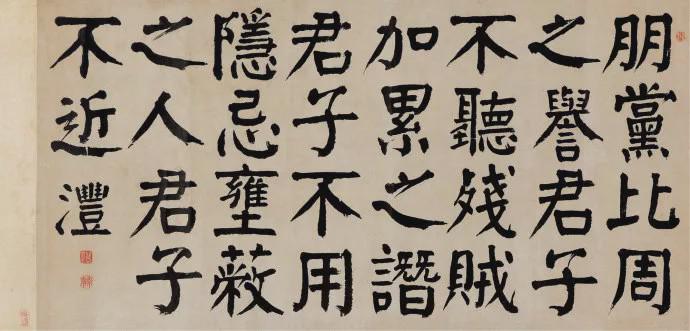 朋黨比周
之譽君子
不聽殘賊
加累之譖
君子不用
隱忌壅蔽
之人君子
不近 灃